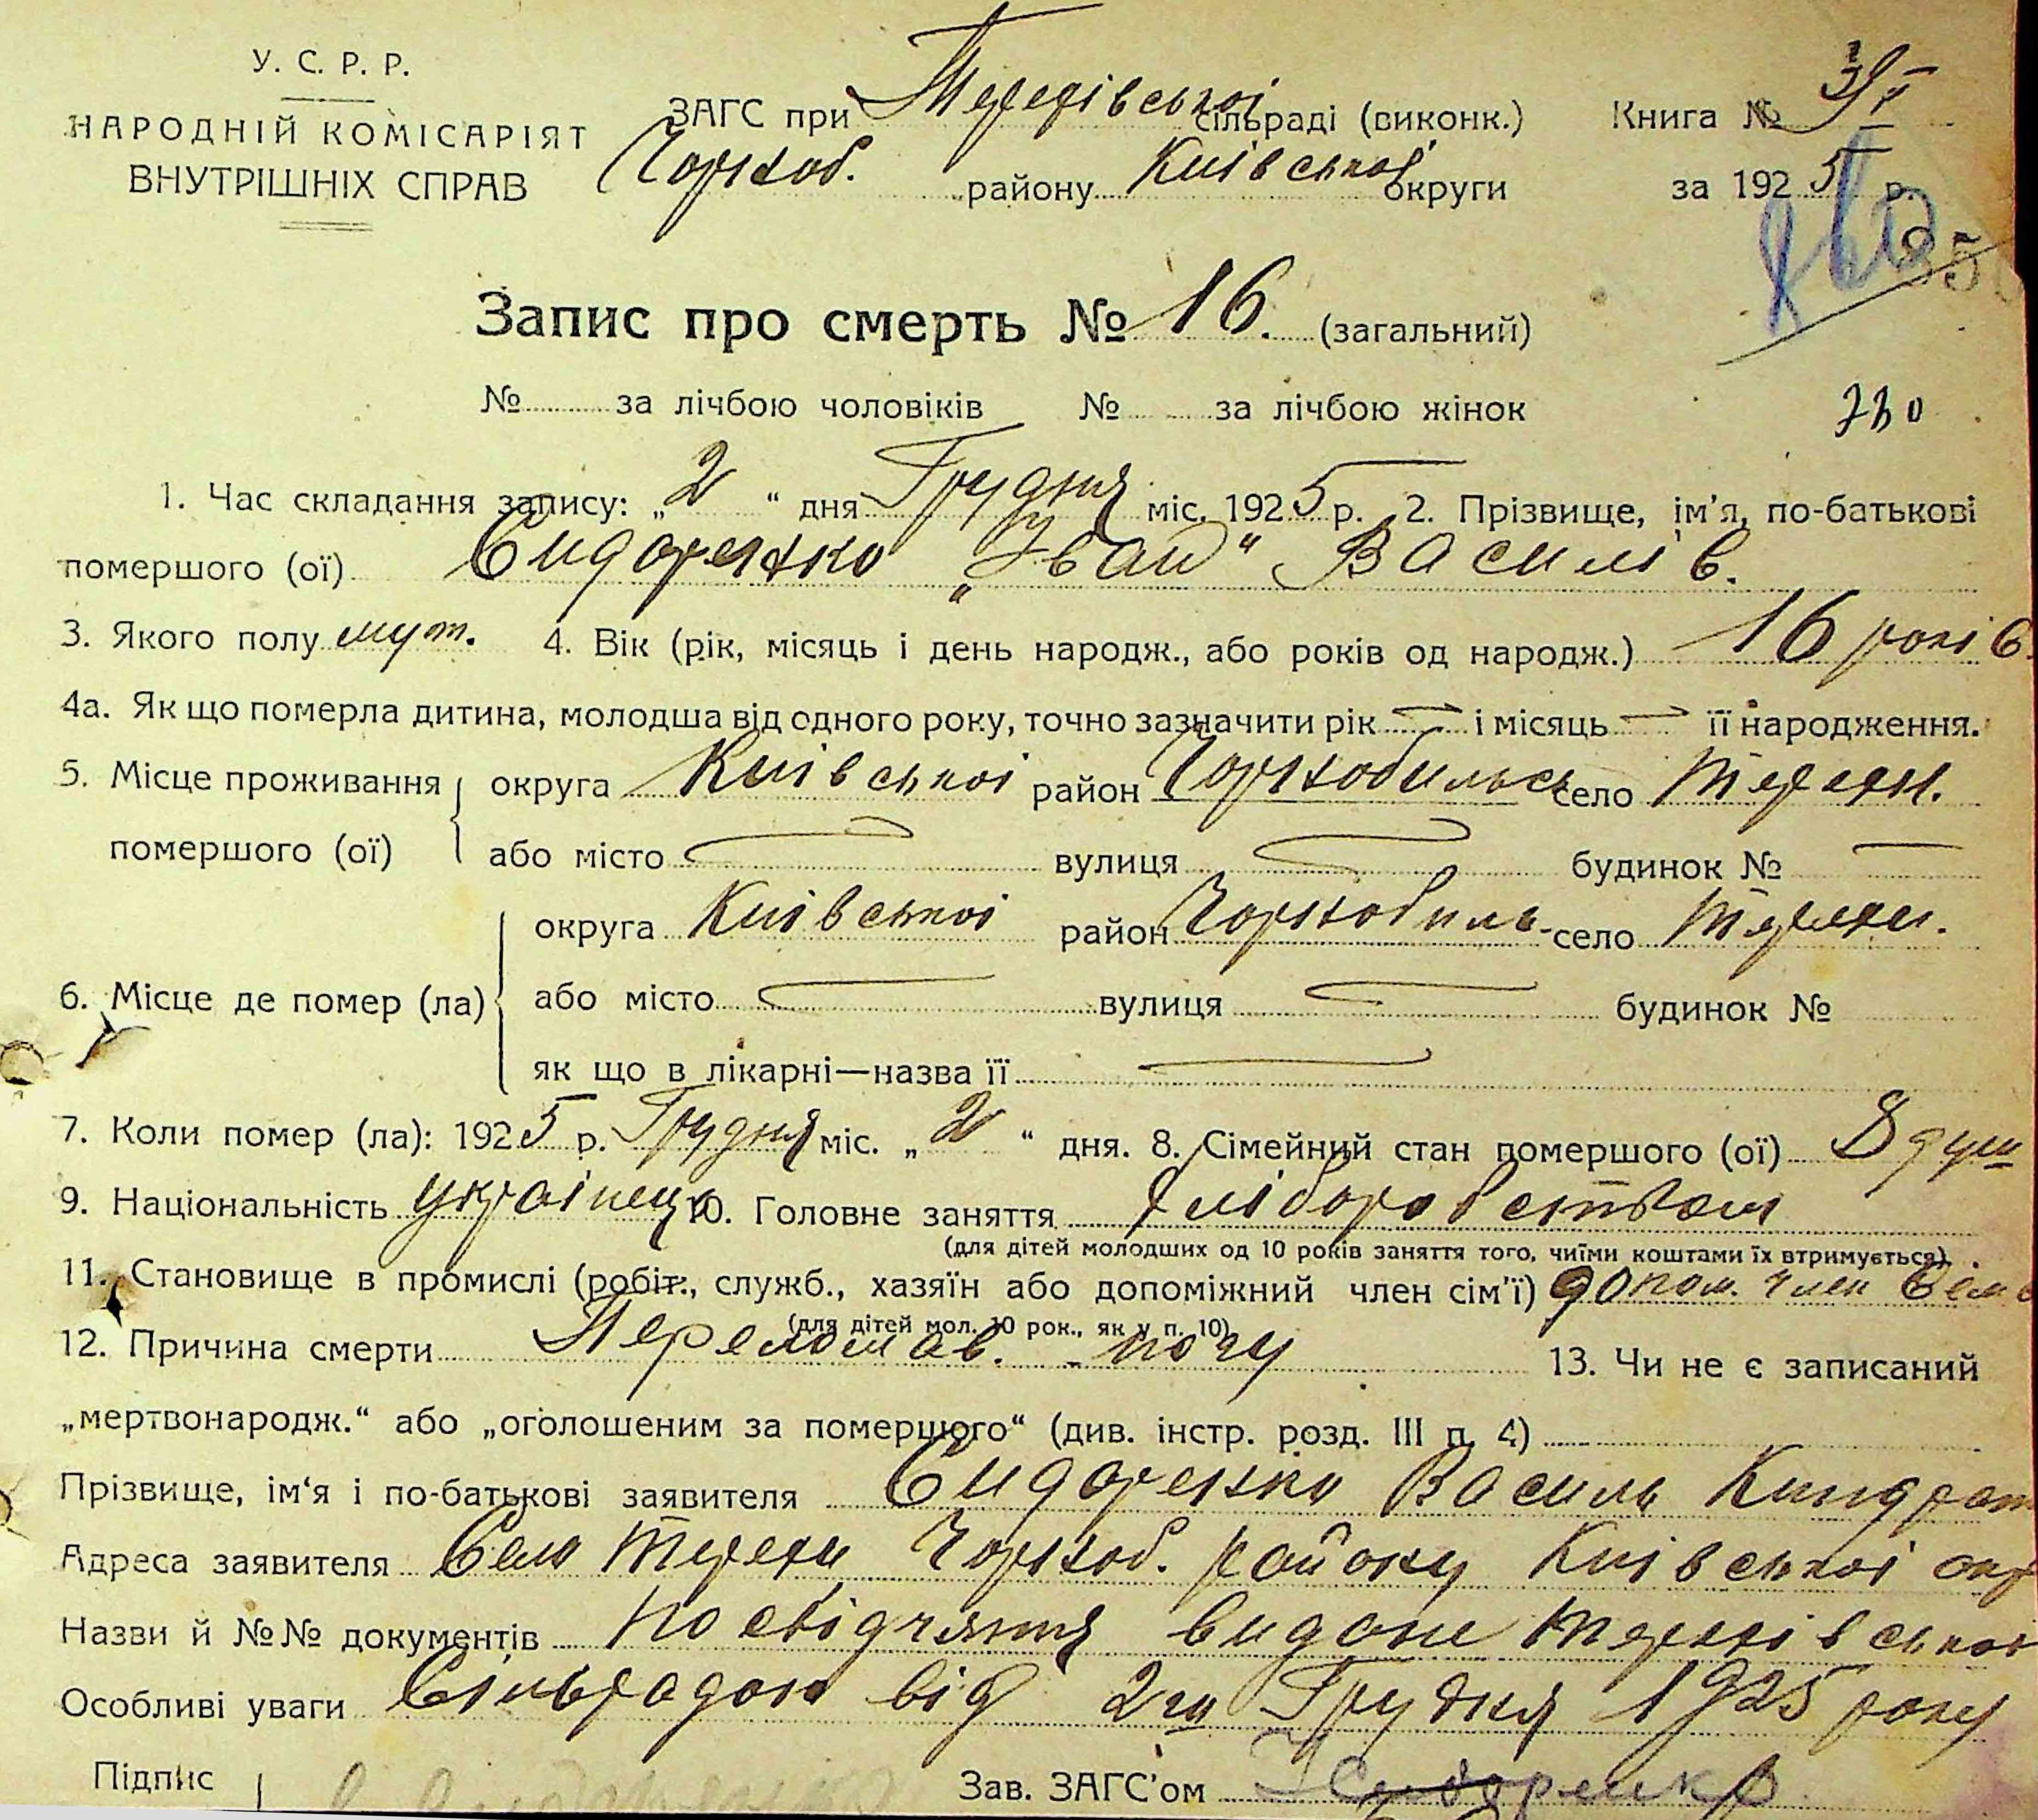 У. С. Р. Р.
НАРОДНІЙ КОМІСАРІЯТ
ВНУТРІШНІХ СПРАВ
ЗАГС при Терехівської сільраді (виконк.)
Чорноб. району Київської округи
Книга №
за 1925 р.
Запис про смерть № 16. (загальний)
№ за лічбою чоловіків № за лічбою жінок
780
1. Час складання запису: „2“ дня Грудня міс. 1925 р. 2. Прізвище, ім'я, по-батькові
помершого (ої) Сидоренко „Іван“ Василів.
3. Якого полу муж. 4. Вік (рік, місяць і день народж., або років од народж.) 16 років
4а. Як що померла дитина, молодша від одного року, точно зазначити рік — і місяць — її народження.
5. Місце проживання помершого (ої) округа Київської район Чорнобильс село Терехи.
або місто — вулиця — будинок № —
6. Місце де помер (ла) округа Київської район Чорнобиль- село Терехи.
або місто — вулиця — будинок №
як що в лікарні—назва її —
7. Коли помер (ла): 1925 р. Грудня міс. „2“ дня. 8. Сімейний стан помершого (ої) 8 душ
9. Національність українец 10. Головне заняття Хліборобством
(для дітей молодших од 10 років заняття того, чиїми коштами їх втримується)
11. Становище в промислі (робіт., служб., хазяїн або допоміжний член сім'ї) допом. член сем
(для дітей мол. 10 рок., як у п. 10)
12. Причина смерти Переломав. ногу 13. Чи не є записаний
„мертвонародж.“ або „оголошеним за помершого“ (див. інстр. розд. III п. 4)
Прізвище, ім‘я і по-батькові заявителя Сидоренко Василь Киндрат
Адреса заявителя Село Терехи Чорноб. району Київської окр
Назви й №№ документів Посвідчяння видане Терехівської
Особливі уваги Сільрадою від 2го Грудня 1925 року
Підпис Зав. ЗАГС'ом Сидоренко